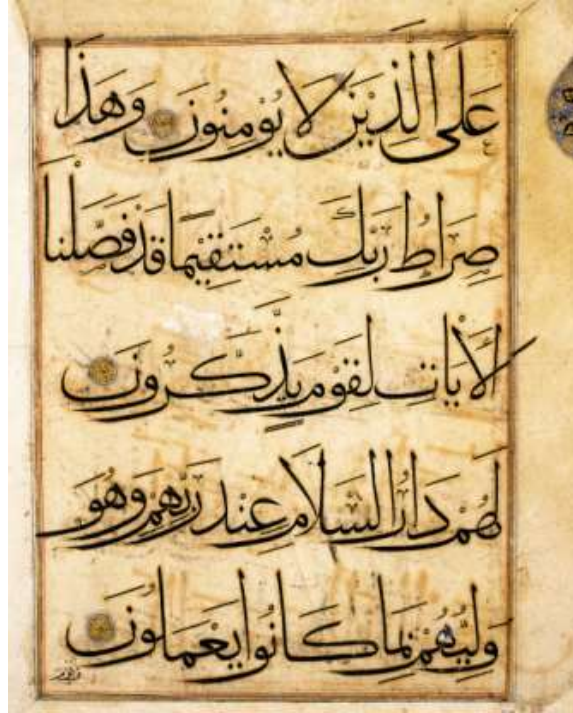 عَلَى الَّذِيْنَ لَا يُؤْمِنُونَ وَهَذَا
صِرَاطُ رَبِّكَ مُسْتَقِيْمًا قَدْ فَصَّلْنَا
الْاَيَاتِ لِقَوْمٍ يَذَّكَّرُونَ
لَهُمْ دَارُ السَّلَامِ عِنْدَ رَبِّهِمْ وَهُوَ
وَلِيُّهُمْ بِمَا كَانُوا يَعْمَلُونَ